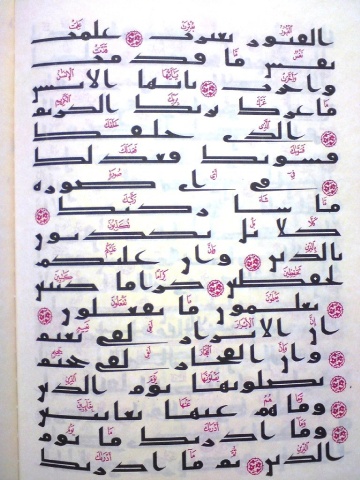 القبور بعثرت علمت
نفس ما قدمت
واخرت يايها الانسن
ما غرك بربك الكريم
الذي خلقك
فسويك فعدلك
في اي صورة
ما شا ركبك
كلا بل تكذبون
بالدين وان عليكم
لحفظين كراما كتبين
يعلمون ما تفعلون
ان الابرار لفي نعيم
وان الفجار لفي جحيم
يصلونها يوم الدين
وما هم عنها بغايبين
وما ادريك ما يوم
الدين ثم ما ادريك